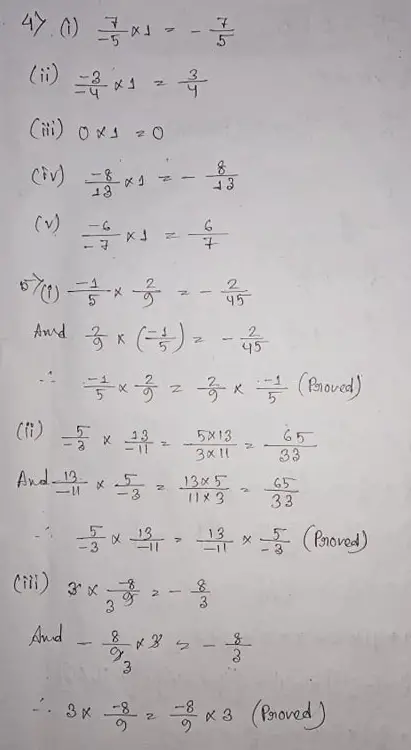 4> (i) 7/-5 × 1 = - 7/5
(ii) -3/-4 × 1 = 3/4
(iii) 0 × 1 = 0
(iv) -8/13 × 1 = - 8/13
(v) -6/-7 × 1 = 6/7
5> (i) -1/5 × 2/9 = - 2/45
And 2/9 × (-1/5) = - 2/45
∴ -1/5 × 2/9 = 2/9 × -1/5 (Proved)
(ii) 5/-3 × 13/-11 = 5×13/3×11 = 65/33
And 13/-11 × 5/-3 = 13×5/11×3 = 65/33
∴ 5/-3 × 13/-11 = 13/-11 × 5/-3 (Proved)
(iii) 3 × -8/9 3 = - 8/3
And - 8/9 3 × 3 = - 8/3
∴ 3 × -8/9 = -8/9 × 3 (Proved)